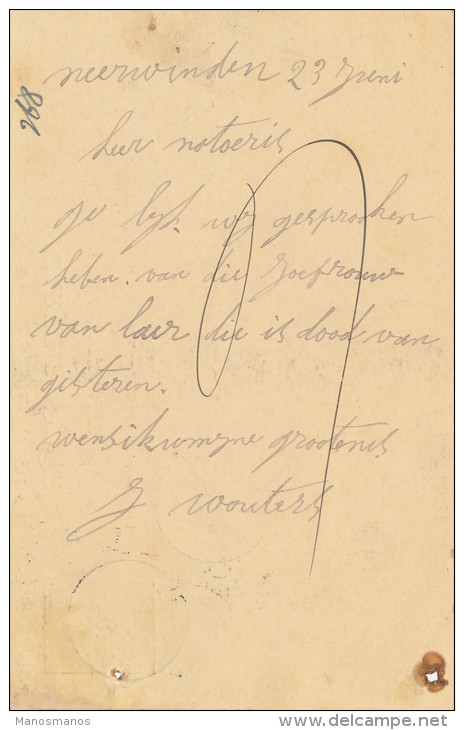 neerwinden 23 Juni
268
heer notoeris
ge hebt wij gesprooken
heben. van die joefrouw
van laer die is dood van
gisteren.
wensik u myne grootenis
J wouters
Manosmanos
www.delcampe.net